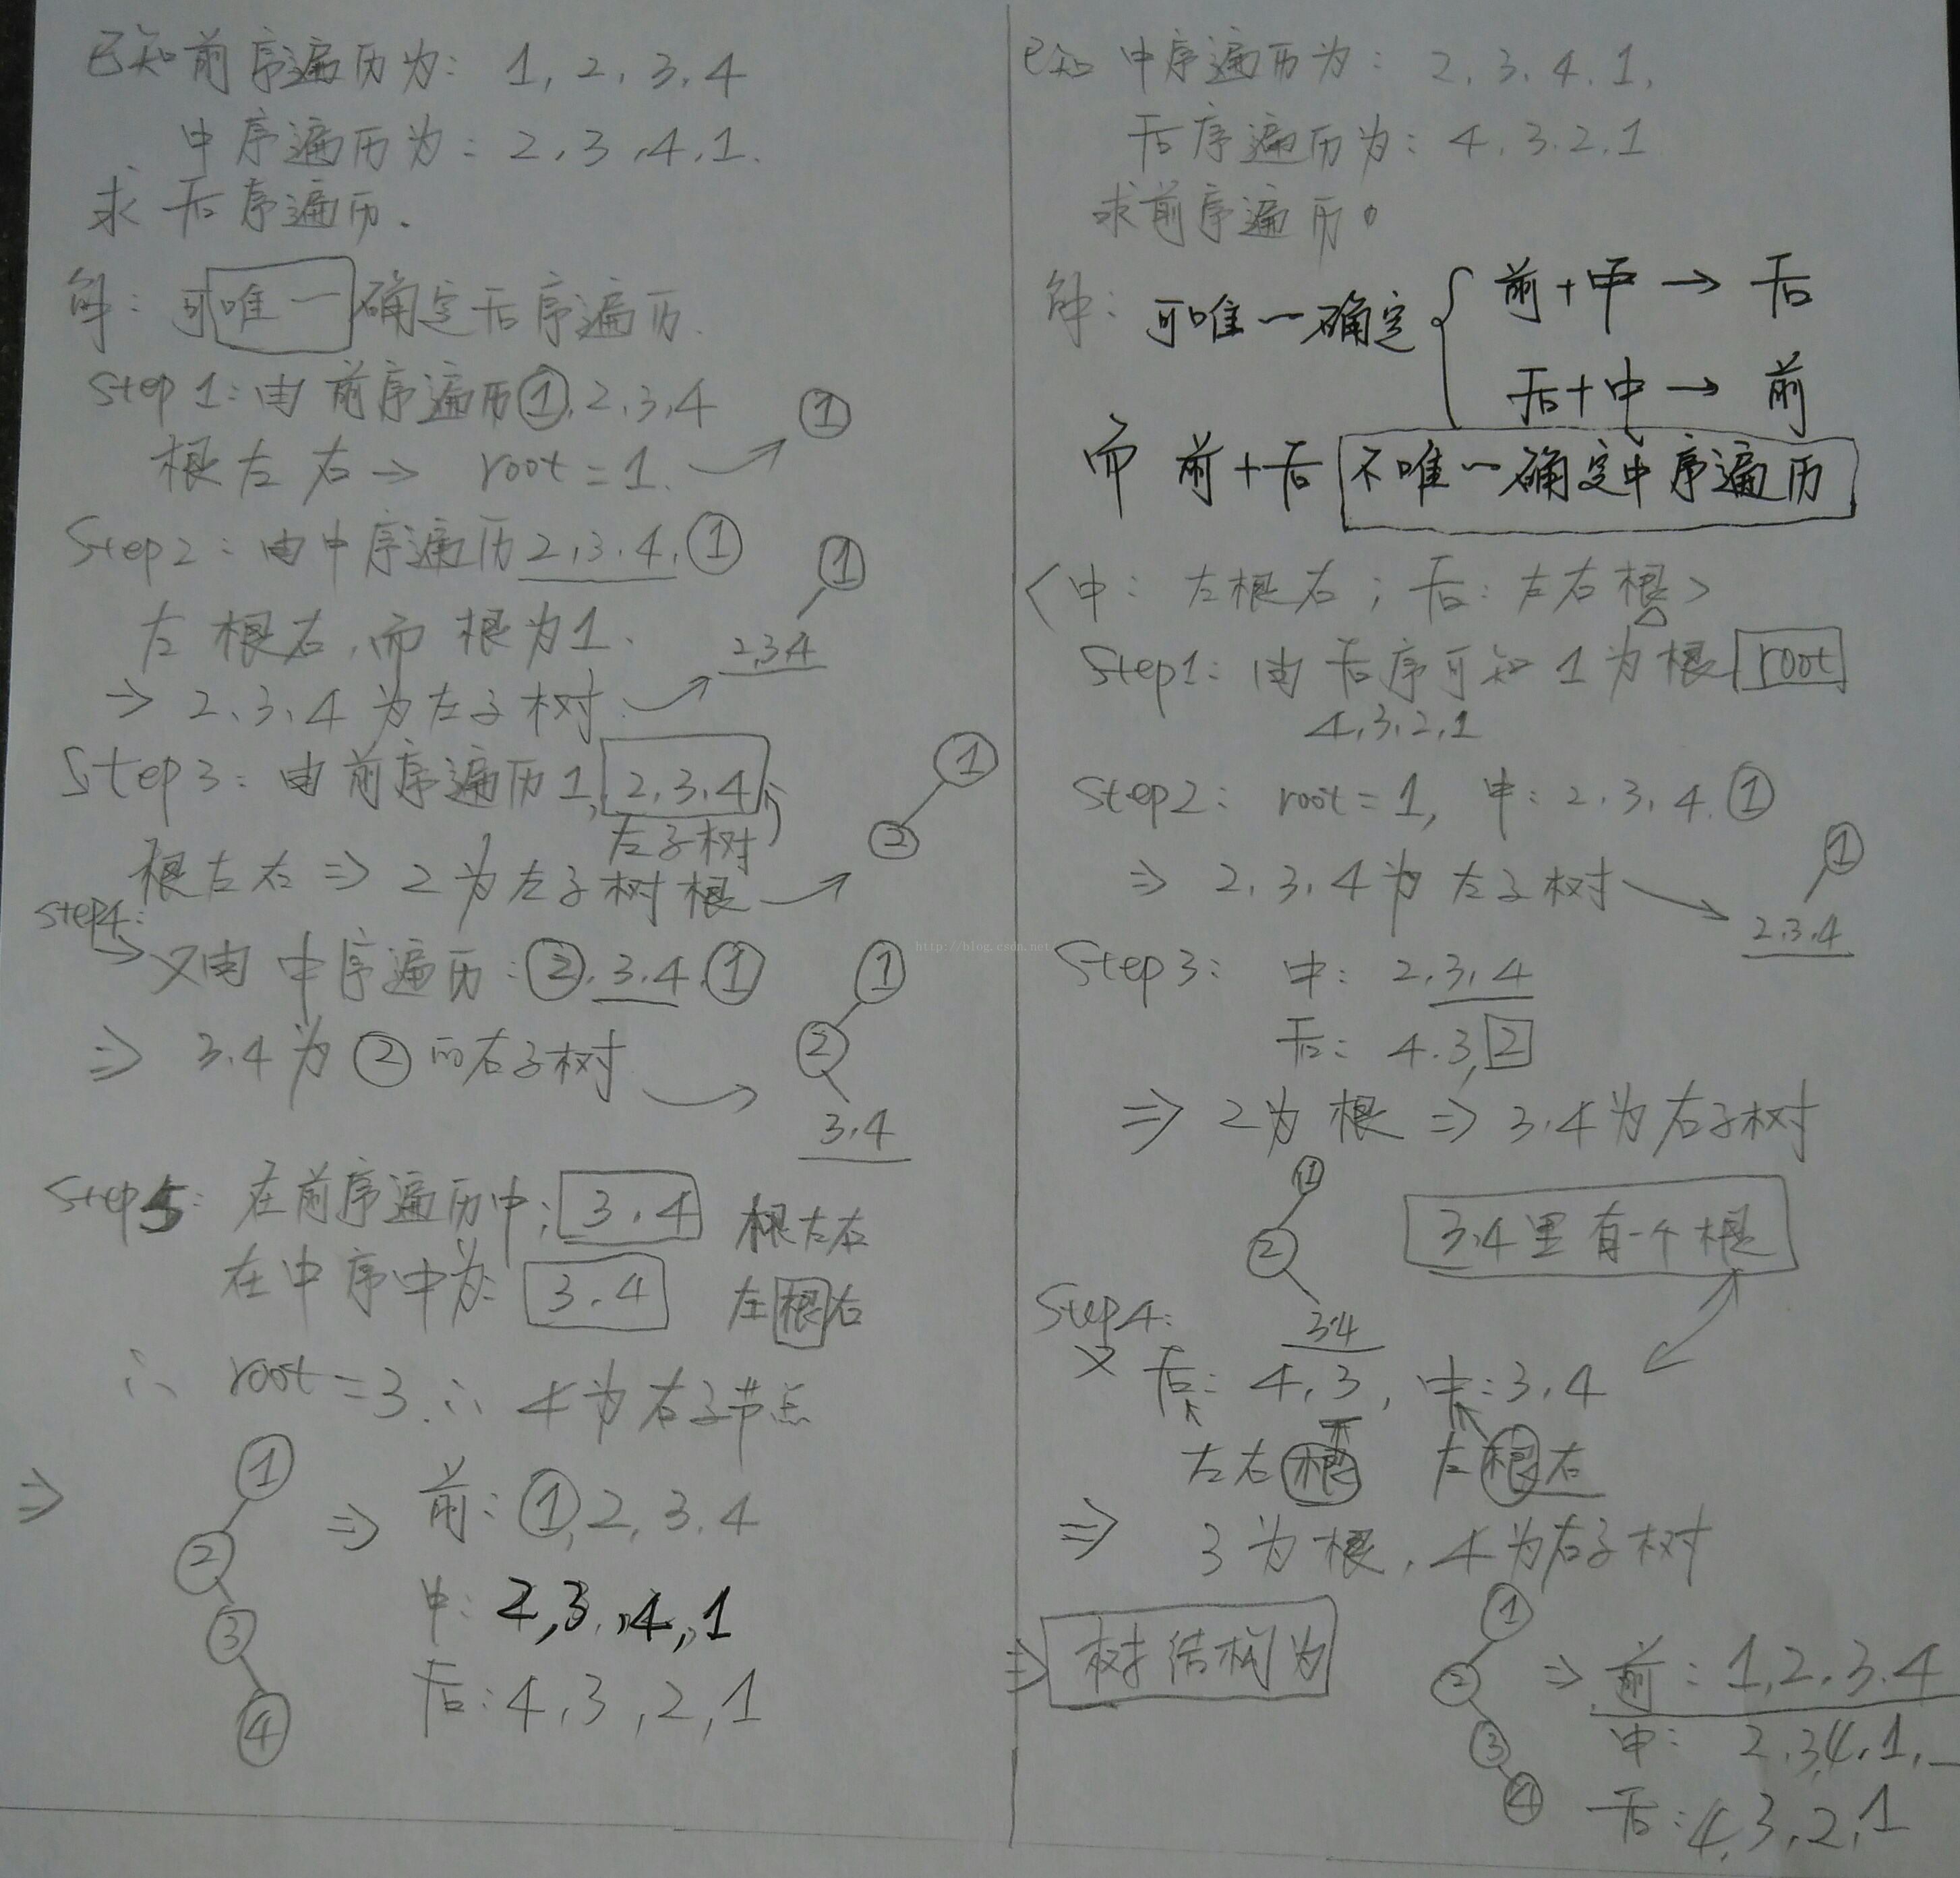 已知前序遍历为: 1, 2, 3, 4
中序遍历为: 2, 3, 4, 1.
求后序遍历.
解: 可唯一确定后序遍历.
Step1: 由前序遍历①,2,3,4
根左右→ root=1.
①
Step2: 由中序遍历2,3,4,①
左根右,而根为1.
①
2,3,4
⇒ 2、3、4为左子树
Step3: 由前序遍历1, 2,3,4
左子树
根左右⇒2为左子树根
①
②
Step4:
又由中序遍历:②,3,4,①
⇒ 3,4为②的右子树
①
②
3,4
Step5: 在前序遍历中: 3,4 根左右
在中序中为: 3,4 左根右
∴ root=3 ∴ 4为右子节点
⇒
①
②
③
④
⇒ 前: ①,2,3,4
中: 2,3,4,1
后: 4,3,2,1
已知 中序遍历为: 2,3,4,1,
后序遍历为: 4,3,2,1
求前序遍历。
解: 可唯一确定
前+中→后
后+中→前
而 前+后 不唯一确定中序遍历
<中: 左根右; 后: 左右根>
Step1: 由后序可知1为根 root
4,3,2,1
Step2: root=1, 中: 2,3,4,①
⇒ 2,3,4为左子树
①
2,3,4
Step3: 中: 2,3,4
后: 4,3,2
⇒ 2为根⇒3,4为右子树
①
②
3,4
3,4里有一个根
Step4:
又 后: 4,3, 中: 3,4
左右根 左根右
⇒ 3为根,4为右子树
⇒ 树结构为
①
②
③
④
⇒ 前: 1,2,3,4
中: 2,3,4,1,
后: 4,3,2,1
http://blog.csdn.net